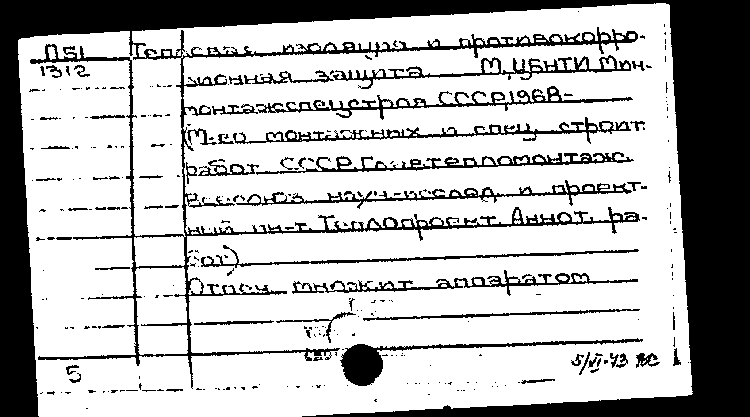 П51 Тепловая изоляция и противокорро-
1312 зионная защита М., ЦБНТИ Мин-
монтажспецстроя СССР, 1968-
(М-во монтажных и спец. строит.
работ СССР. Главтепломонтаж.
Всесоюз. науч.-исслед. и проект-
ный ин-т Теплопроект. Аннот. ра-
бот)
Отпеч. множит. аппаратом
5 5/VI-73